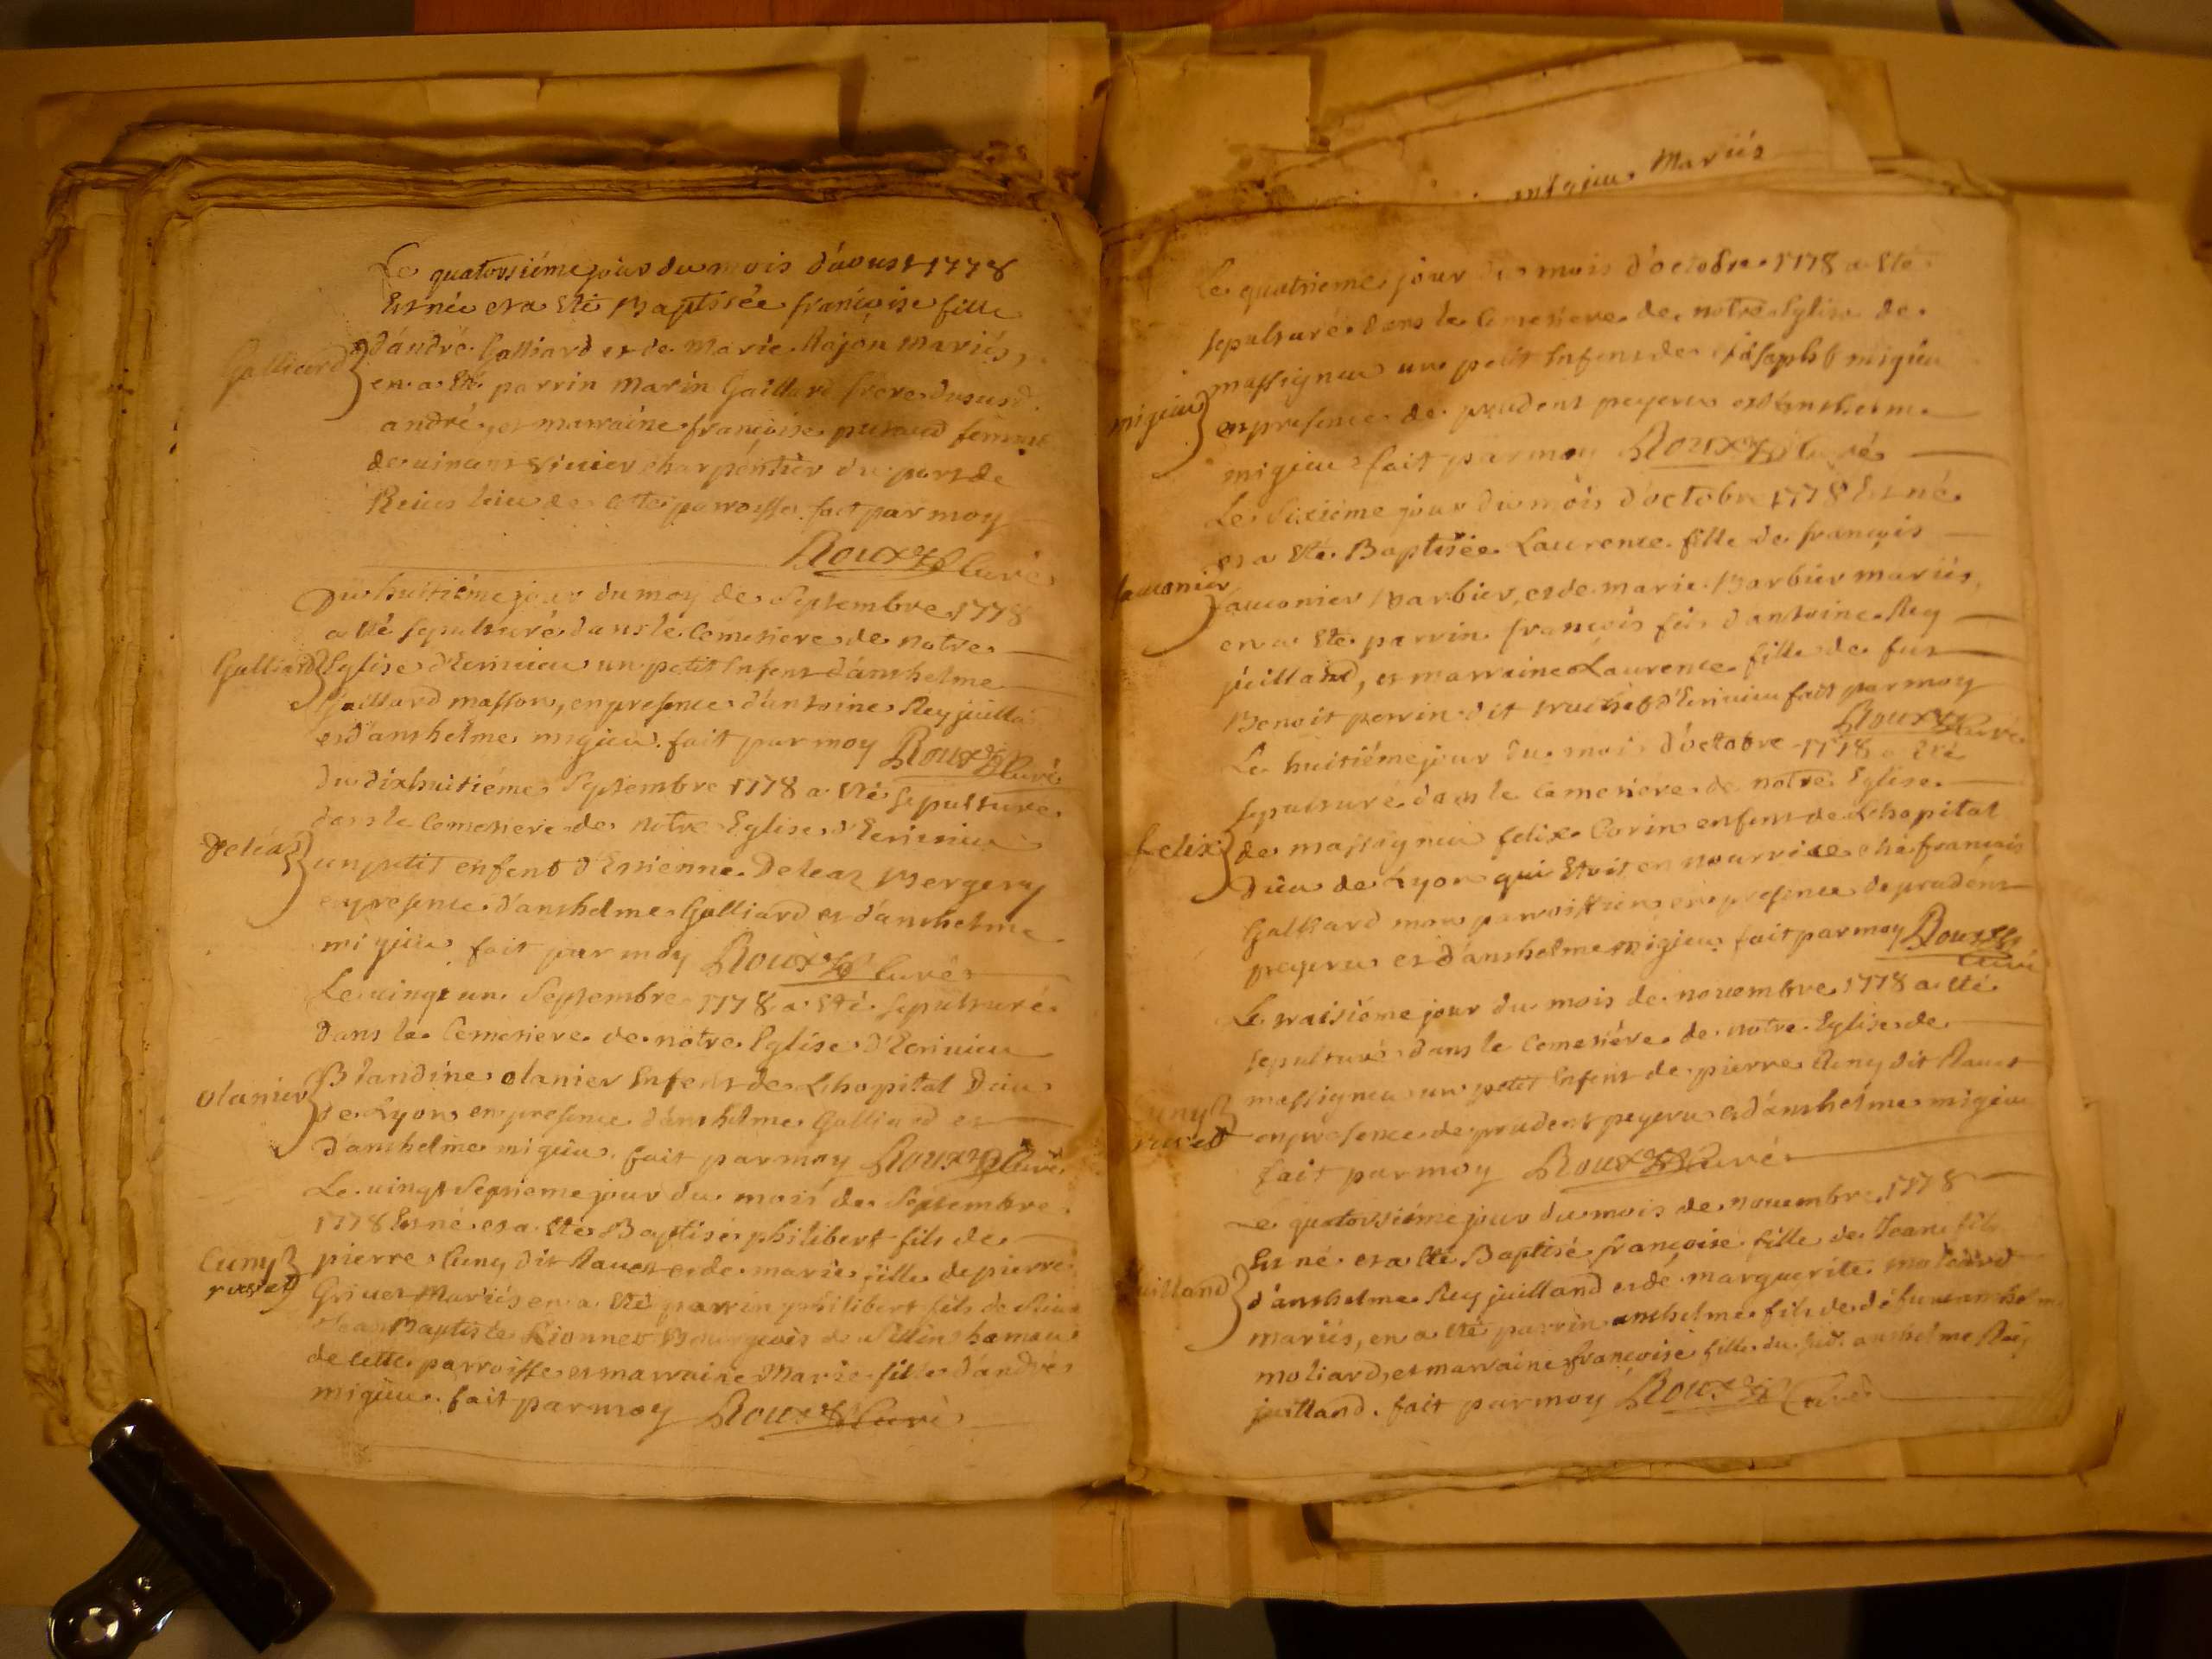 Le quatorsiéme jour du mois d'aoust 1778
Est née et a Eté Baptisée françoise fille
Galliard d'andré Galliard et de Marie Najon mariés,
en a Eté parrin Marin Gaillard frere du susd.
andré, et marraine françoise femme
de vincent vivier charpentier du port de
lieu de cette parroisse. fait par moy
Roux Curé
Du huitiéme jour du moy de Septembre 1778
a Eté sepulturé dans le Cemetiere de notre
Galliard Eglise d'Ecrivieu un petit Enfent d'anthelme
Gaillard masson, en presence d'antoine Rey juilland
et d'anthelme migieu. fait par moy Roux Curé
Du dixhuitiéme Septembre 1778 a Eté Sepulture
dans le Cemetiere de notre Eglise d'Ecrivieu
Deléaz un petit enfent d'Estienne Deleaz Bergery
en presence d'anthelme Galliard et d'anthelme
migieu fait par moy Roux Curé
Le vingt un Septembre 1778 a Eté sepulturé
Dans le Cemetiere de notre Eglise d'Ecrivieu
olanier Blandine olanier Enfent de Lhopital Dieu
de Lyon en presence d'anthelme Galliard et
d'anthelme migieu. fait par moy Roux Curé
Le vingt Septieme jour du mois de Septembre
1778 Est né et a Eté Baptisé philibert fils de
Cuny pierre Cuny dit Ravet et de marie fille de pierre
ravet Grivet Mariés en a Eté parrin philibert fils de Sieur
Jean Baptiste Lionnet Bourgeois de Sillin hameau
de cette parroisse et marraine Marie fille d'andré
migieu. fait par moy Roux Curé
migieu Mariés
Le quatrieme jour du mois d'octobre 1778 a Eté
sepulturé dans le Cemetiere de notre Eglise de
massignieu un petit Enfent de migieu
migieu en presence de prudent peyeru et d'anthelme
migieu fait par moy Roux Curé
Le sixiéme jour du mois d'octobre 1778 Est né
et a Eté Baptisée Laurence fille de françois
fauconier fauconier Barbier, et de marie Barbier mariés,
en a Eté parrin françois fils d'antoine Rey
juilland, et marraine Laurence fille de fut
Benoit perrin dit d'Ecrivieu fait par moy
Roux Curé
Le huitiéme jour du mois d'octobre 1778 a Eté
sepulturé dans le Cemetiere de notre Eglise
felix de massignieu felix Corin enfent de Lhopital
Dieu de Lyon qui Etoit en nourrice ché françois
Galliard mon parroissien en presence de prudent
peyeru et d'anthelme migieu fait par moy Roux
Curé
Le traisiéme jour du mois de novembre 1778 a Eté
sepulturé dans le Cemetiére de notre Eglise de
cuny massignieu un petit Enfent de pierre Cuny dit Ravet
ravet en presence de prudent peyeru et d'anthelme migieu
fait par moy Roux Curé
Le quatorsiéme jour du mois de novembre 1778
Est né et a Eté Baptisé françoise fille de Jean fils
juilland d'anthelme Rey juilland et de marguerite moliard
mariés, en a Eté parrin anthelme fils de défunt anthelme
moliard, et marraine françoise fille du sud. anthelme Rey
juilland. fait par moy Roux Curé